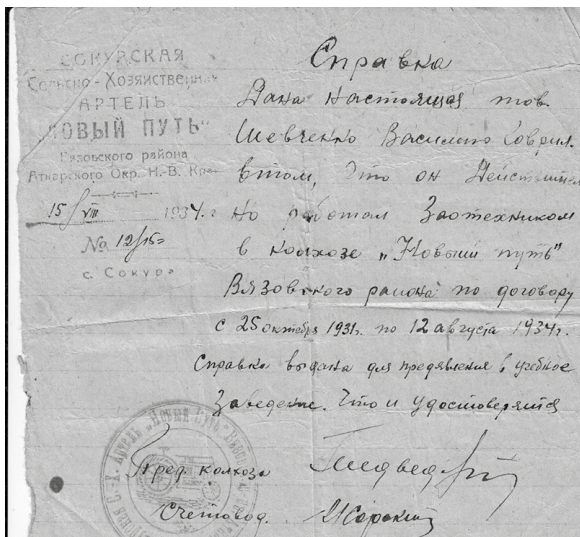 СОКУРСКАЯ
Сельско-Хозяйственная
АРТЕЛЬ
"НОВЫЙ ПУТЬ"
Вязовского района
Аткарского Окр. Н.-В. Края
15/VIII 1934. г
No 12/15
с. Сокур
Справка
Дана настоящая тов.
Шевченко Василию Гаврил.
втом, что он Действитель
но работал Зоотехником
в колхозе „Новый путь"
Вязовского района по договору
с 25 октября 1931г. по 12 августа 1934г.
Справка выдана для предявления в учебное
Заведение. Что и удостоверяется
Пред. колхоза Медведев
Счетовод. Жаркий
Артель „Новый Путь"